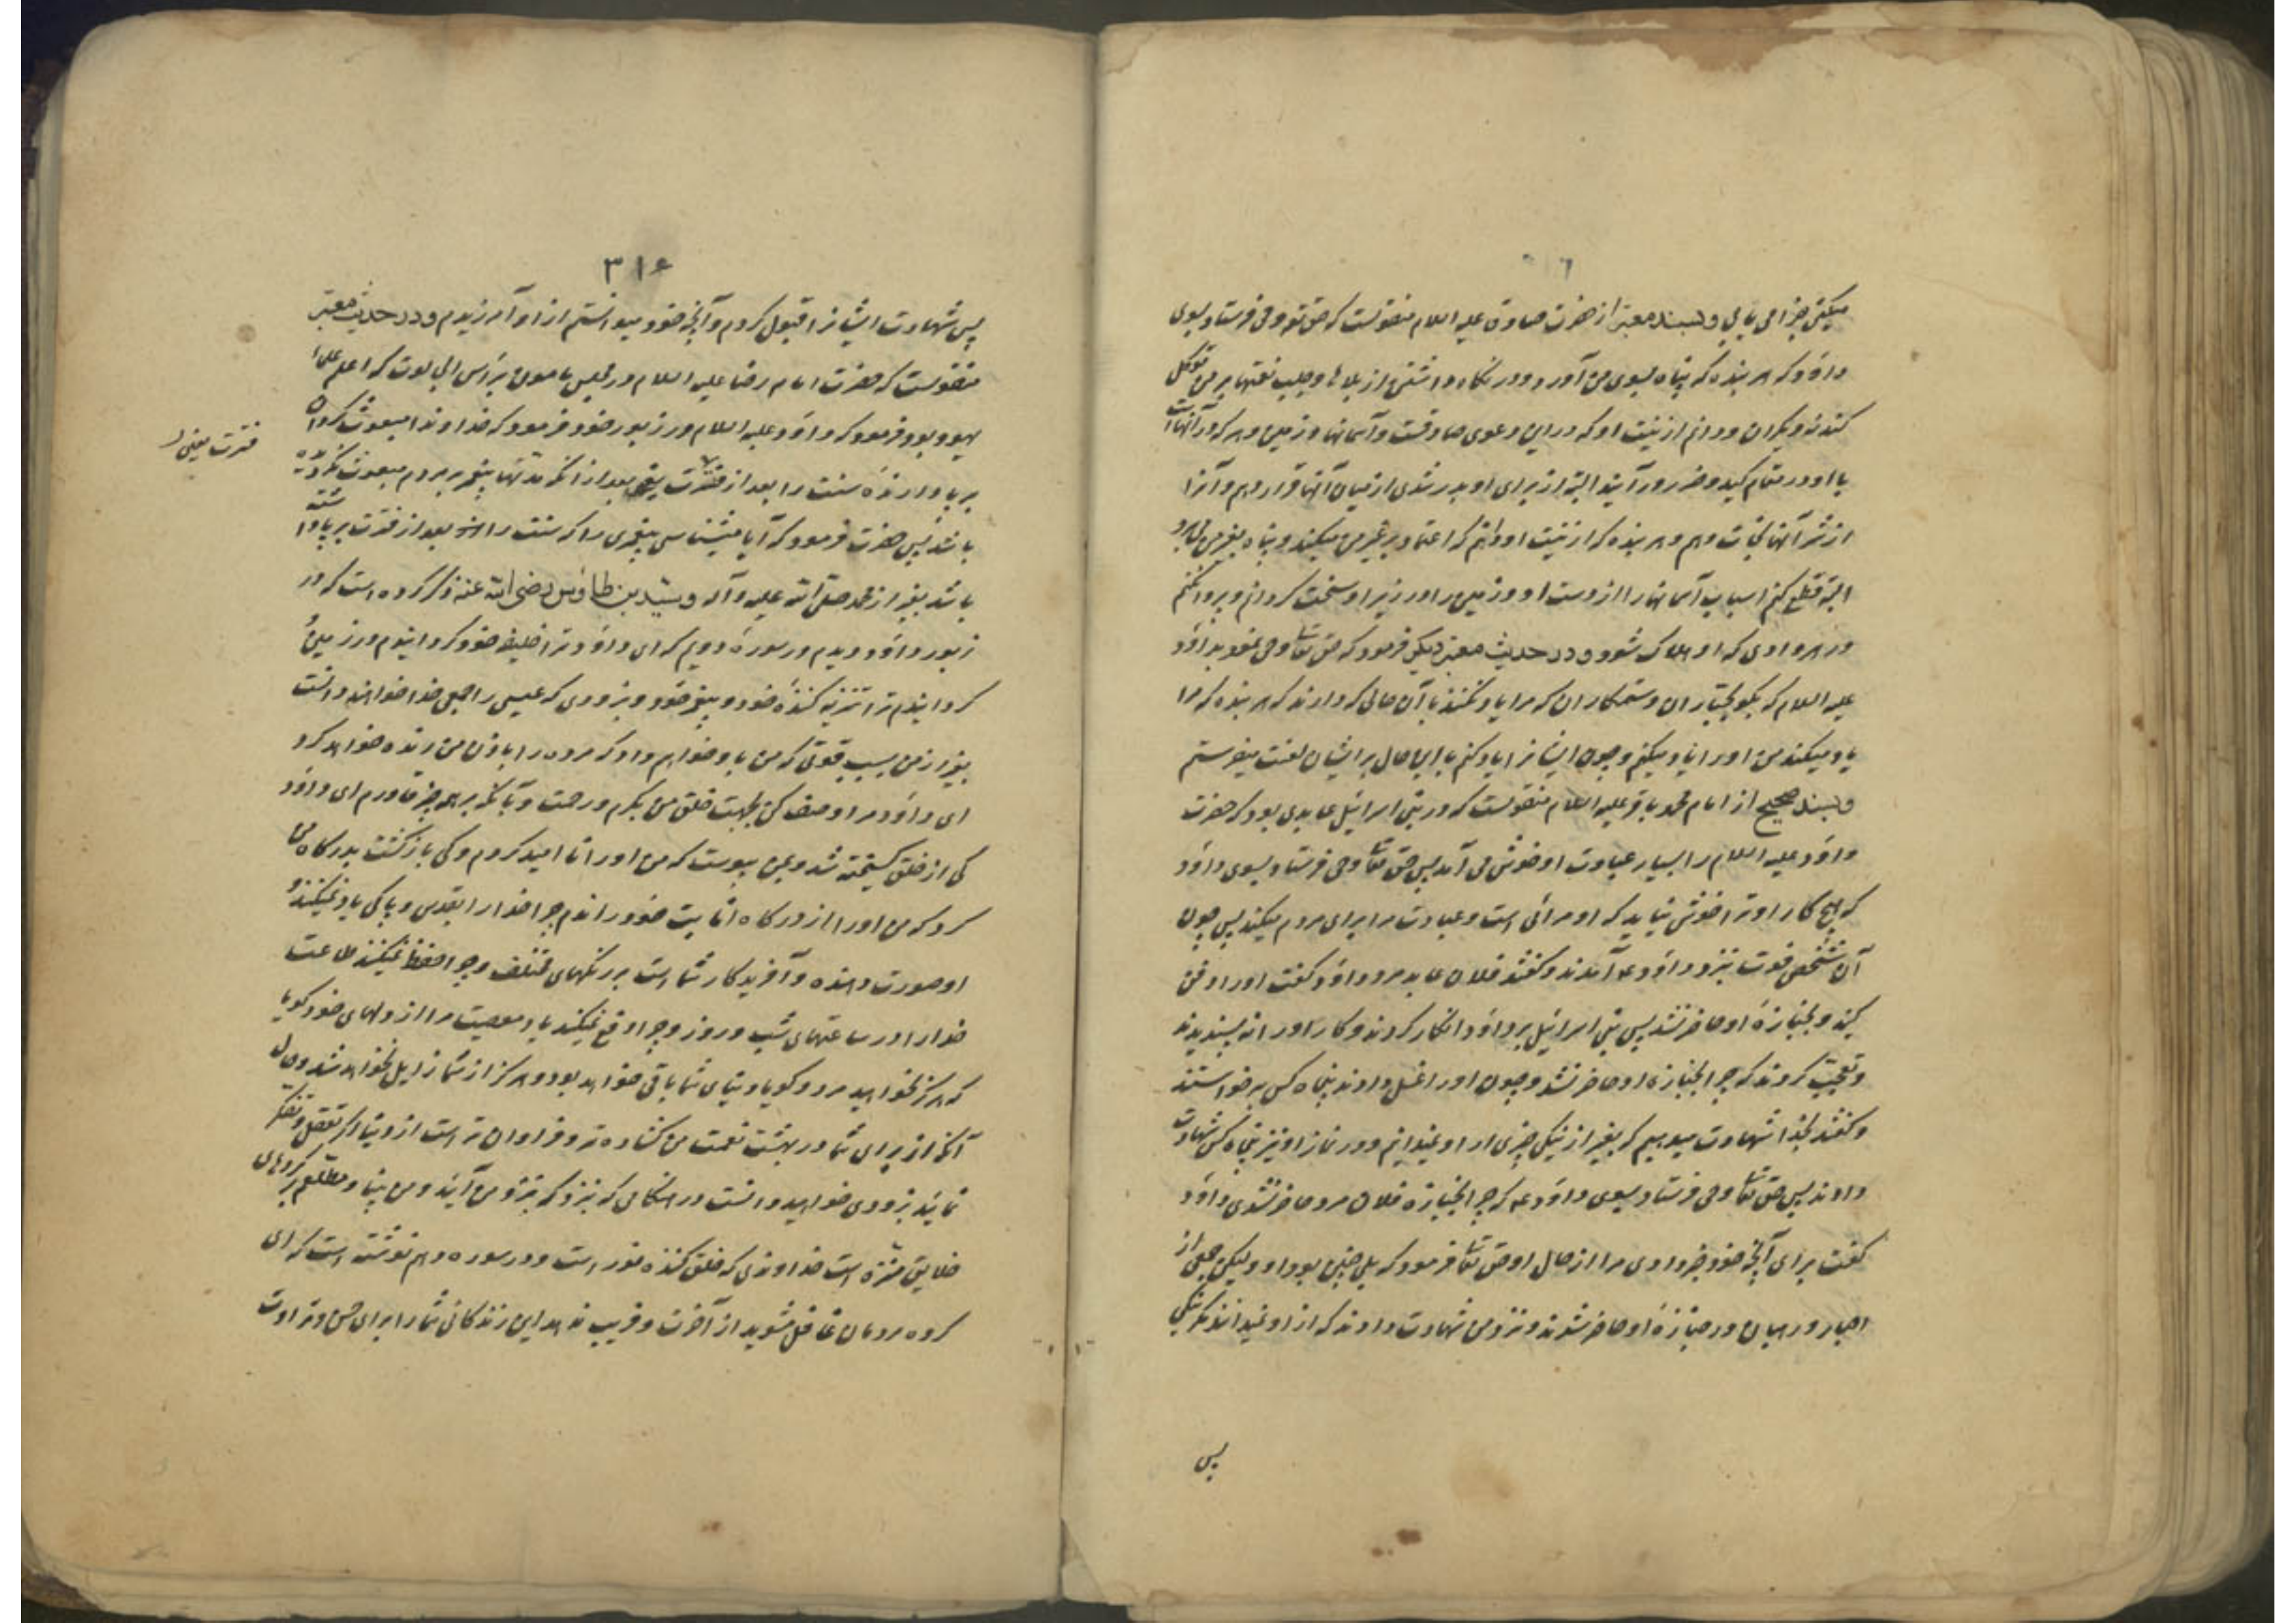 میکنی جزا می یابی و بسند معتبر از حضرت صادق علیه السلام منقولست که حق تع وحی فرستاد بسوی
داود که هر بنده که پناه بسوی من آورد و در نگاه داشتن از بلاها و جلب نعمتها بر من توکل
کند نه دیگران و دانم از نیت او که در این دعوی صادقست و آسمانها و زمین و هر که در آنها است
با او در مقام کید و ضرر در آیند البته از برای او بدر شدی از میان آنها قرار دهم و او را
از شر آنها نجات دهم و هر بنده که از نیت او دانم که اعتماد بر غیر من میکند و پناه بغیر من میبرد
البته قطع کنم اسباب آسمانها را از دست او و زمین را در زیر او سخت گردانم و پروا نکنم
در هر وادی که او هلاک شود و در حدیث معتبر دیگر فرمود که حق تعا وحی نمود بداود
علیه السلام که بگو بجباران و ستمکاران که مرا یاد نکنند با آن حالی که دارند که هر بنده که مرا
یاد میکند من او را یاد میکنم و چون ایشانرا یاد کنم با این حال بر ایشان لعنت میفرستم
و بسند صحیح از امام محمد باقر علیه السلام منقولست که در بنی اسرائیل عابدی بود که حضرت
داود علیه السلام را بسیار عبادت او خوش می آمد پس حق تعا وحی فرستاد بسوی داود
که هیچ کار او ترا خوش نیاید که او مرائی است و عبادت مرا برای مردم میکند پس چون
آن شخص فوت نزد داود ع آمدند و گفتند فلان عابد مرد داود گفت او را دفن
کنید و بجنازهٔ او حاضر نشد پس بنی اسرائیل بر داود انکار کردند و کار او را نه پسندیدند
و تعجب کردند که چرا بجنازه او حاضر نشد و چون او را غسل دادند پنجاه کس برخواستند
و گفتند بخدا شهادت میدهیم که بغیر از نیکی چیزی از او نمیدانیم و در نماز او نیز پنجاه کس شهادت
دادند پس حق تعا وحی فرستاد بسوی داود ع که چرا بجنازه فلان مرد حاضر نشدی داود
گفت برای آنچه خود خبر دادی مرا از حال او حق تعا فرمود که بلی چنین بود او و لیکن جمعی از
احبار و رهبان در جنازهٔ او حاضر شدند و نزد من شهادت دادند که از او نمیدانند مگر نیکی
پس
۳۱۶
پس شهادت ایشانرا قبول کردم و آنچه خود میدانستم از او آمرزیدم و در حدیث معتبر
منقولست که حضرت امام رضا علیه السلام در مجلس مامون برأس الجالوت که اعلم علماء
یهود بود فرمود که داود علیه السلام در زبور خود فرمود که خداوندا مبعوث گردان
بر پا دارندهٔ سنت را بعد از فترت یعنی بعد از آنکه مدتها پیغمبر بمردم مبعوث نگردیده
باشد پس حضرت فرمود که آیا میشناسی پیغمبری را که سنت را بعد از فترت بر پا داشته
باشد بغیر از محمد صلی الله علیه وآله و سید بن طاوس رضی الله عنه ذکر کرده است که در
زبور داود دیدم در سوره دویم که ای داود ترا خلیفه خود گردانیدم در زمین و
گردانیدم ترا تنزیه کننده خود و پیغمبر خود و بزودی که عیسی را جمعی خدا خواهند دانست
بغیر از من بسبب قوتی که من باو خواهم داد که مرده را باذن من زنده خواهد کرد
ای داود مرا وصف کن بجهت خلق من بکرم و رحمت و بآنکه بر همه چیز قادرم ای داود
کی از خلق گسیخته شد و بمن پیوست که من او را نا امید کردم و کی بازگشت بدرگاه من
کرد که من او را از درگاه انابت خود راندم چرا خدا را بقدس و پاکی یاد نمیکنند و
او صورت دهنده و آفریدگار شما است بر رنگهای مختلف و چرا حفظ نمیکنند طاعت
خدا را در ساعتهای شب و روز و چرا دفع نمیکنند یاد معصیت مرا از دلهای خود گویا
که هرگز نخواهید مرد و گویا دنیای شما باقی خواهد بود و هرگز از شما زایل نخواهد شد و حال
آنکه از برای شما در بهشت نعمت من گشاده تر و فراوان تر است از دنیا اگر تعقل و تفکر
نمائید بزودی خواهید دانست در هنگامی که بنزد من آئید و من بینا و مطلعم بر کردهای
خلایق منزه است خداوندی که خلق کننده نور است و در سوره دهم نوشته است که ای
گروه مردمان غافل مشوید از آخرت و فریب ندهد این زندگانی شما را برای حسن و تراوت
فترت یعنی